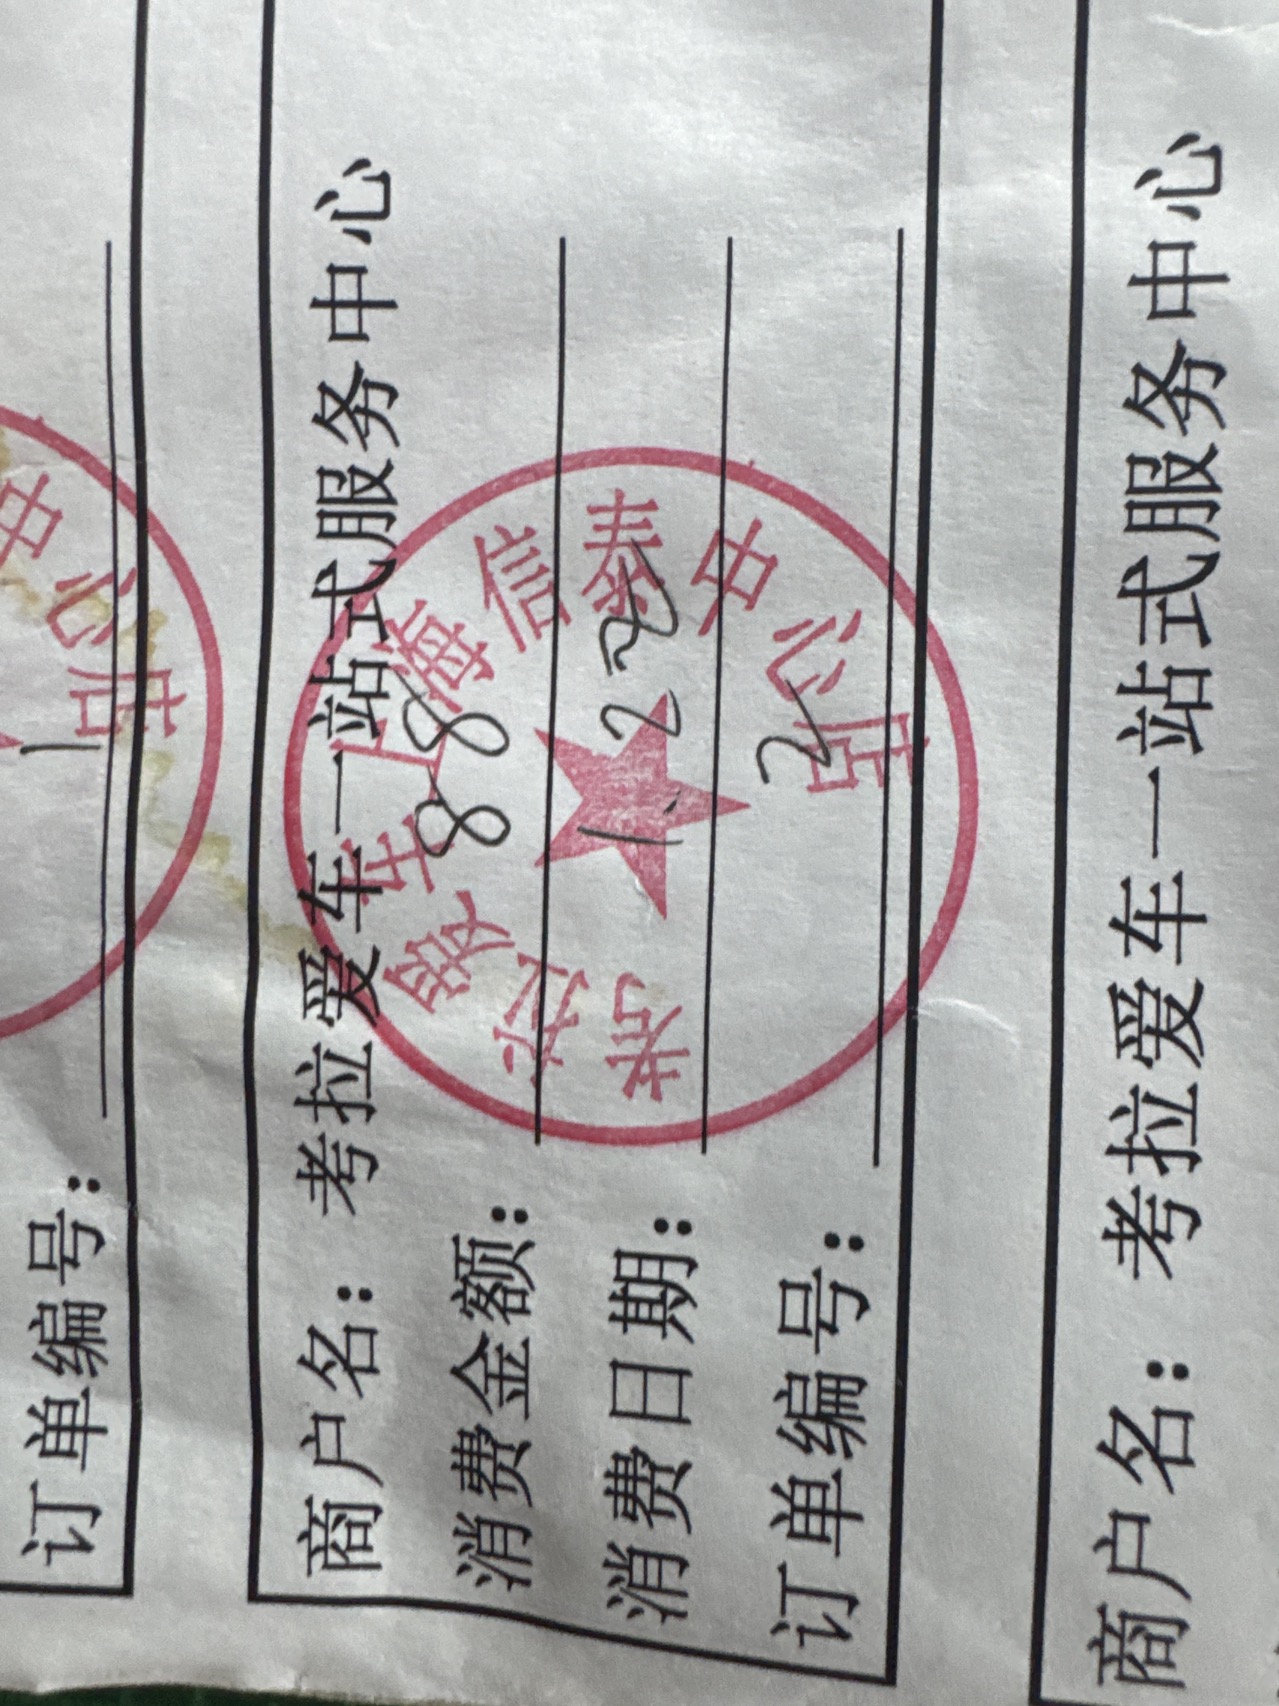 订单编号： 1
中心店
商户名： 考拉爱车一站式服务中心
消费金额： 88
消费日期： 1.22
订单编号： 2
考拉爱车上海信泰中心店
商户名： 考拉爱车一站式服务中心